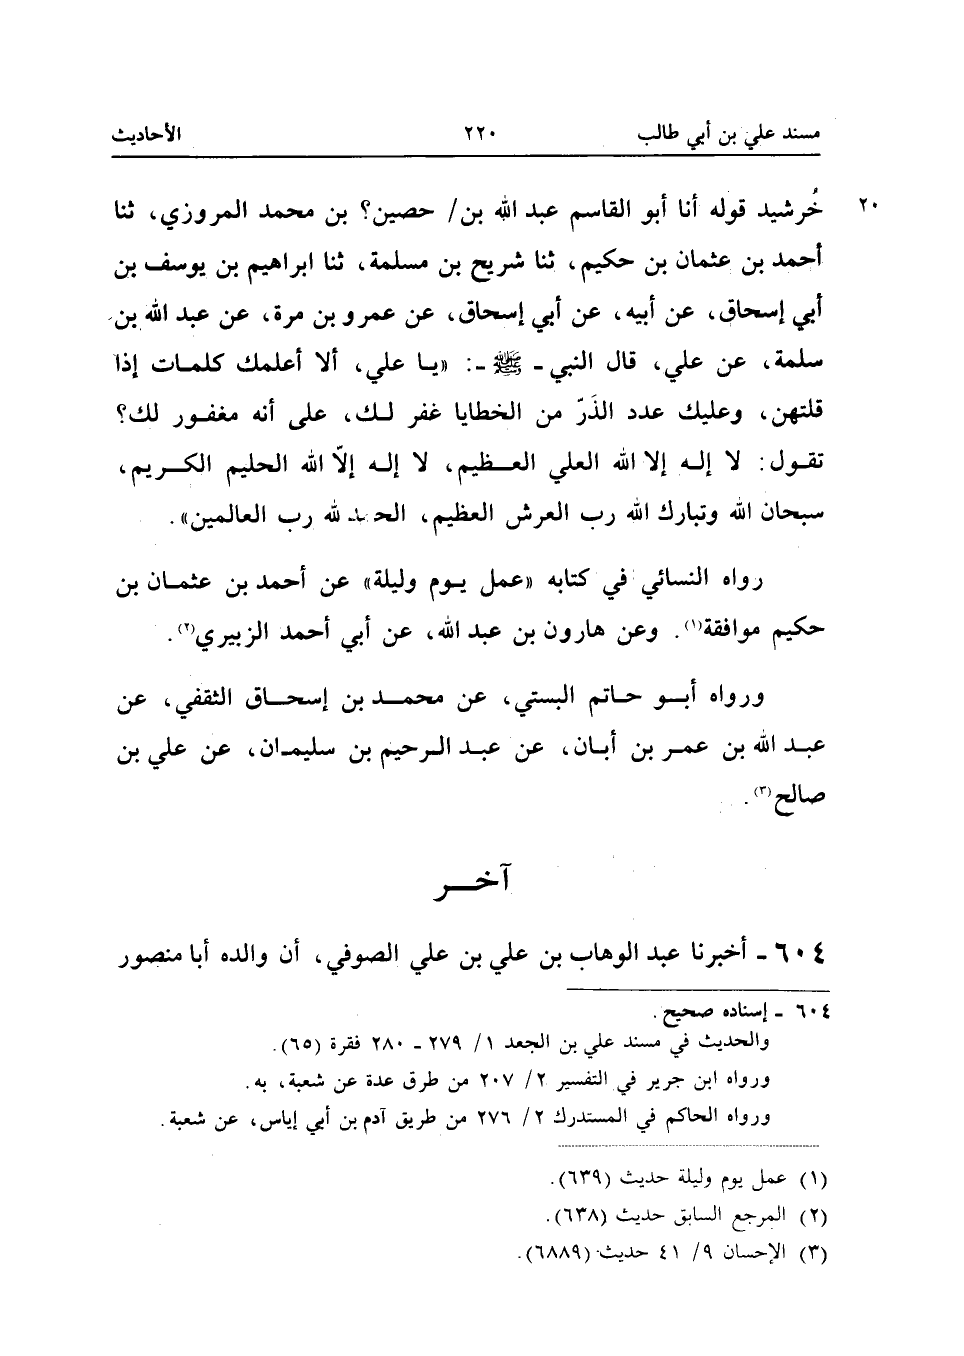 مسند علي بن أبي طالب ٢٢٠ الأحاديث
٢٠ خُرشيد قوله أنا أبو القاسم عبد الله بن/ حصين؟ بن محمد المروزي، ثنا
أحمد بن عثمان بن حكيم، ثنا شريح بن مسلمة، ثنا ابراهيم بن يوسف بن
أبي إسحاق، عن أبيه، عن أبي إسحاق، عن عمرو بن مرة، عن عبد الله بن
سلمة، عن علي، قال النبي - ﷺ -: «يا علي، ألا أعلمك كلمات إذا
قلتهن، وعليك عدد الذَرّ من الخطايا غفر لك، على أنه مغفور لك؟
تقول: لا إله إلا الله العلي العظيم، لا إله إلاّ الله الحليم الكريم،
سبحان الله وتبارك الله رب العرش العظيم، الحمد لله رب العالمين».
رواه النسائي في كتابه «عمل يوم وليلة» عن أحمد بن عثمان بن
حكيم موافقة(١). وعن هارون بن عبد الله، عن أبي أحمد الزبيري(٢).
ورواه أبو حاتم البستي، عن محمد بن إسحاق الثقفي، عن
عبد الله بن عمر بن أبان، عن عبد الرحيم بن سليمان، عن علي بن
صالح(٣).
آخر
٦٠٤ - أخبرنا عبد الوهاب بن علي بن علي الصوفي، أن والده أبا منصور
٦٠٤ - إسناده صحيح.
والحديث في مسند علي بن الجعد ١/ ٢٧٩ - ٢٨٠ فقرة (٦٥).
ورواه ابن جرير في التفسير ٢/ ٢٠٧ من طرق عدة عن شعبة، به.
ورواه الحاكم في المستدرك ٢/ ٢٧٦ من طريق آدم بن أبي إياس، عن شعبة.
(١) عمل يوم وليلة حديث (٦٣٩).
(٢) المرجع السابق حديث (٦٣٨).
(٣) الإحسان ٩/ ٤١ حديث (٦٨٨٩).